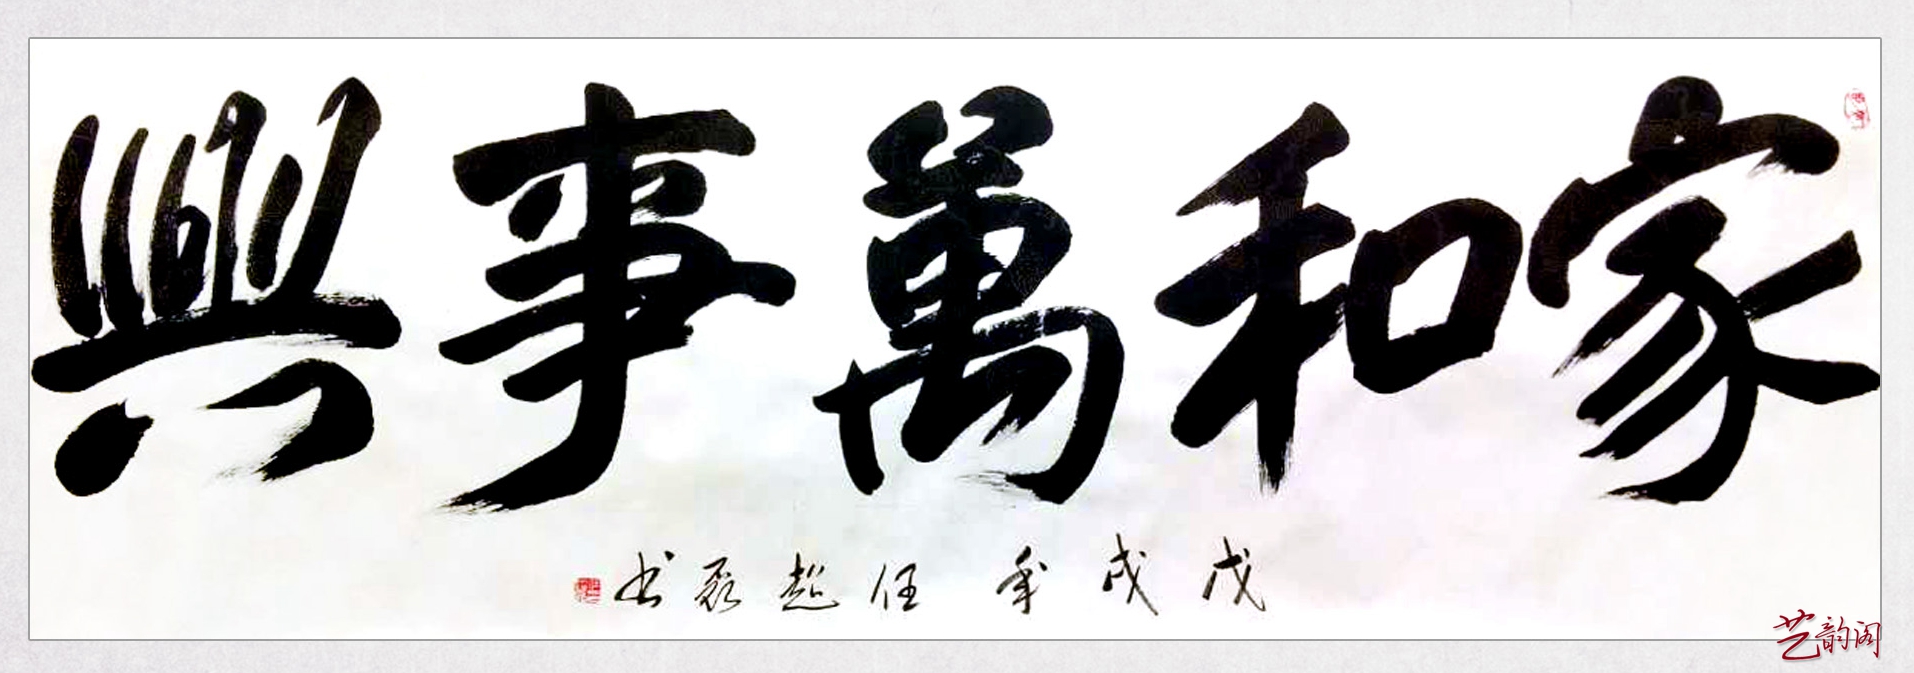 家和萬事興
戊戌年任超磊书
艺韵阁